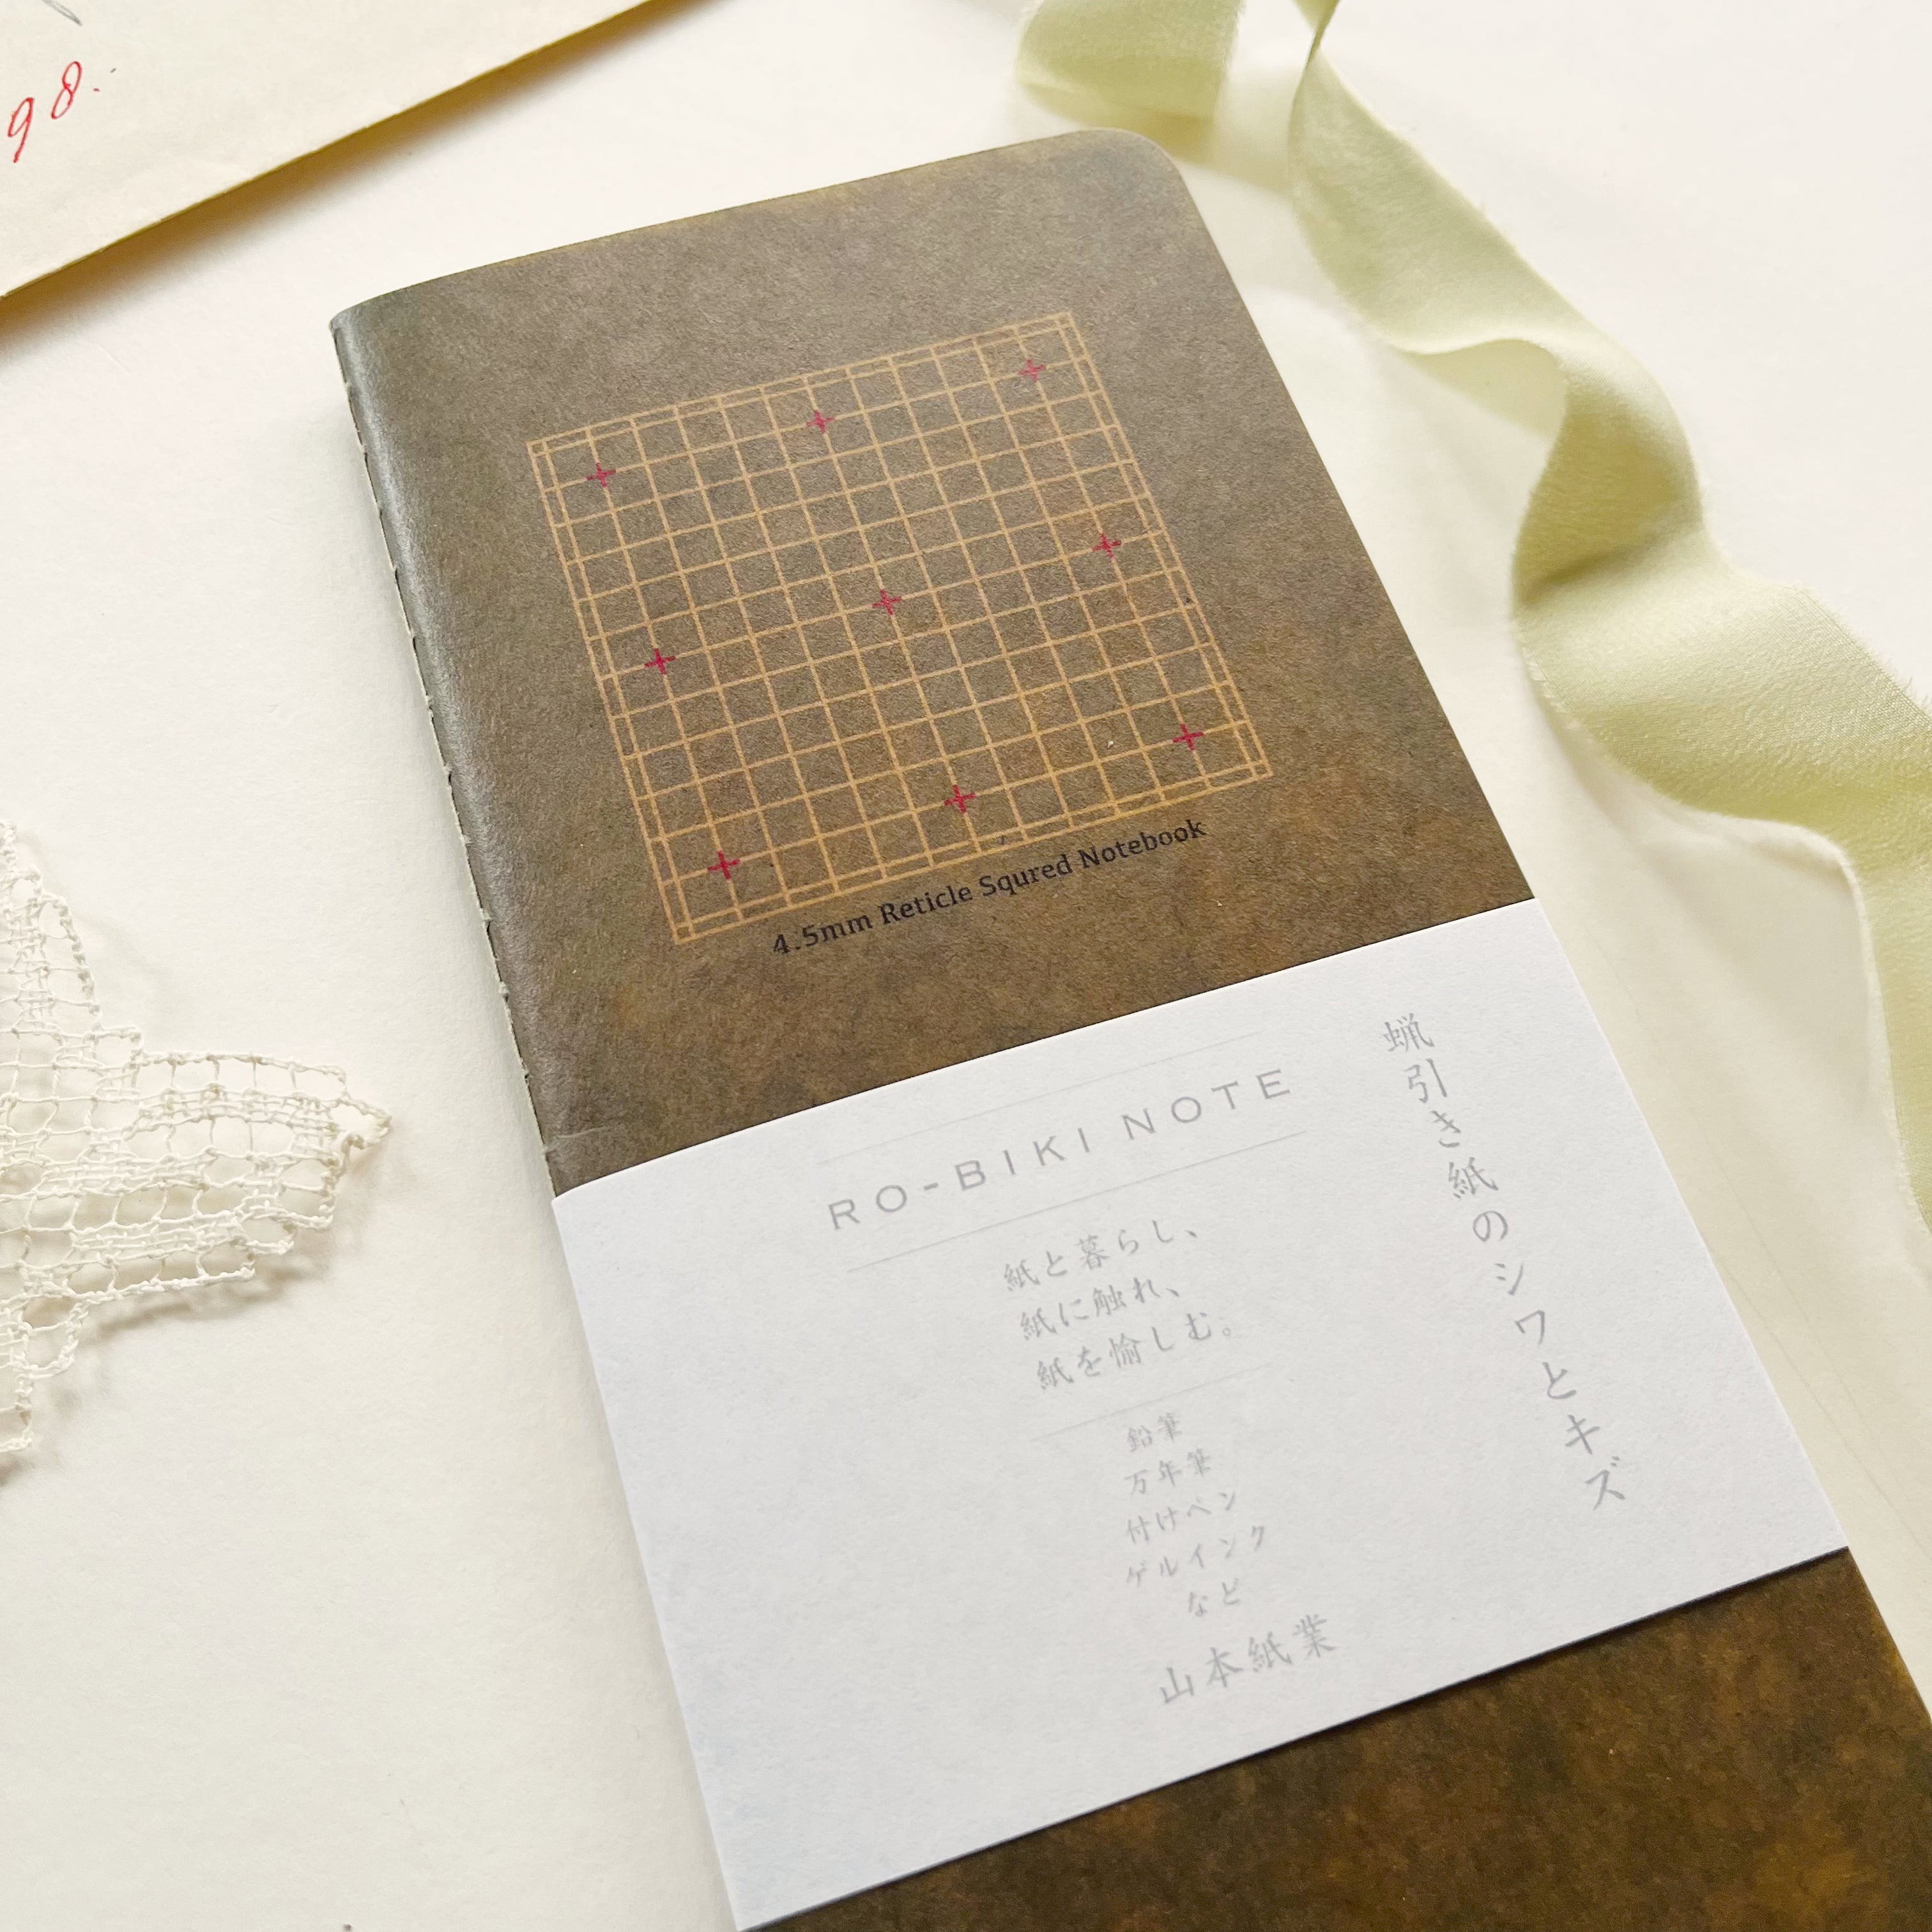 98.
4.5mm Reticle Squred Notebook
RO-BIKI NOTE
紙と暮らし、
紙に触れ、
紙を愉しむ。
鉛筆
万年筆
付けペン
ゲルインク
など
山本紙業
蝋引き紙のシワとキズ